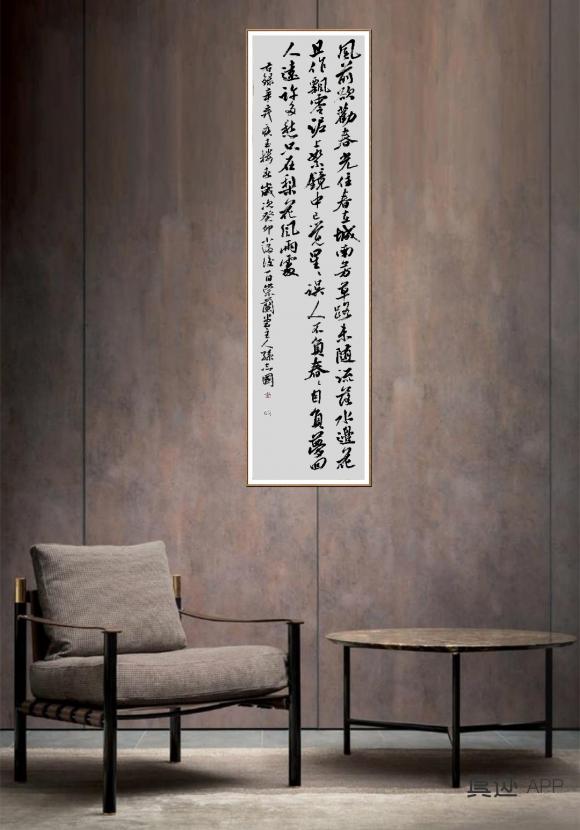 風前欲勸春光住春在城南芳草路未隨流落水邊花
且作飄零泥上絮鏡中已覺星〻誤人不負春〻自負夢回
人遠許多愁只在梨花風雨處
右錄辛弃疾玉樓春歲次癸卯小滿後一日崇蘭堂主人孫志國
真迹 APP